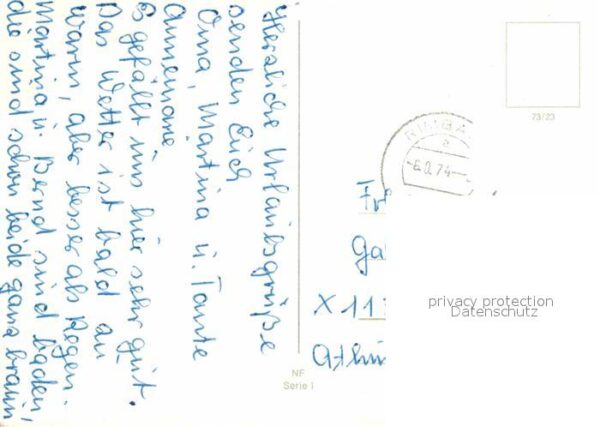 Herzliche Urlaubsgrüße
senden Euch
Oma, Martina u. Tante
Annemarie
Es gefällt uns hier sehr gut.
Das Wetter ist bald zu
warm, aber besser als Regen.
Martina u. Bernd sind baden,
die sind schon beide ganz braun
73/23
6.9.74
X 11
NF
Serie I
privacy protection
Datenschutz